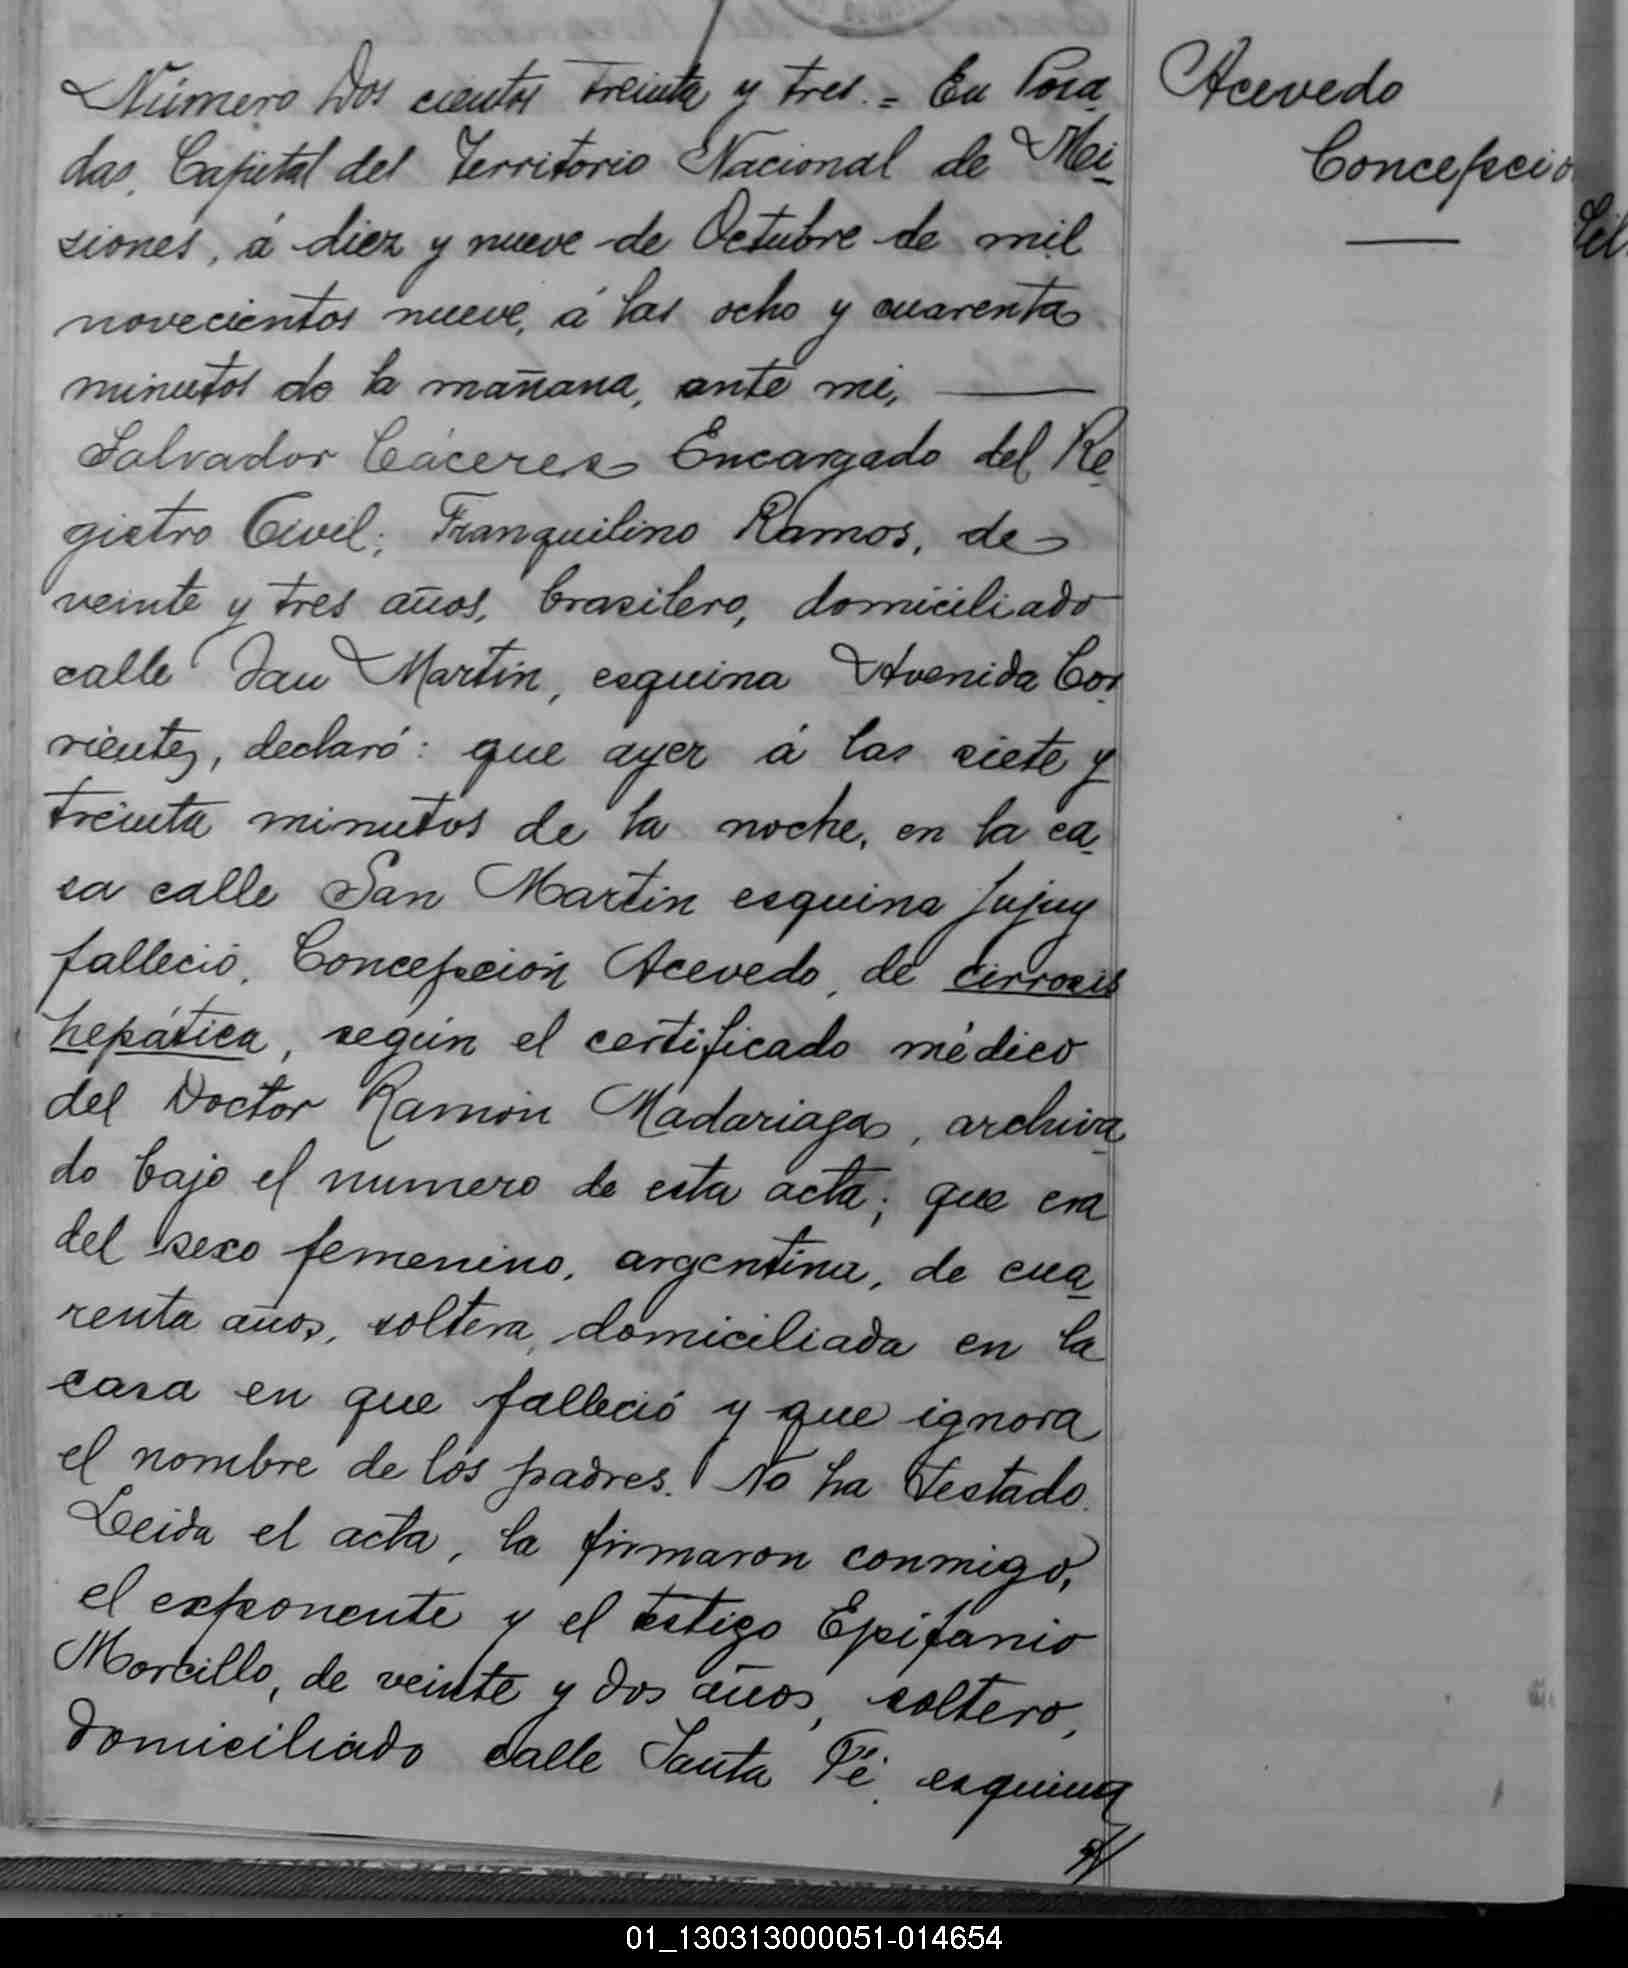 Número Dos cientos treinta y tres. = En Posa
das, Capital del Territorio Nacional de Mi
siones, á diez y nueve de Octubre de mil
novecientos nueve, á las ocho y cuarenta
minutos de la mañana, ante mi,
Salvador Cáceres Encargado del Re
gistro Civil; Tranquilino Ramos, de
veinte y tres años, brasilero, domiciliado
calle San Martín, esquina Avenida Cor
rientes, declaró: que ayer á las siete y
treinta minutos de la noche, en la ca
sa calle San Martin esquina Jujuy
falleció, Concepción Acevedo, de cirrosis
hepática, según el certificado médico
del Doctor Ramón Madariaga, archiva
do bajo el numero de esta acta; que era
del sexo femenino, argentina, de cua
renta años, soltera, domiciliada en la
casa en que falleció y que ignora
el nombre de los padres. No ha testado.
Leida el acta, la firmaron conmigo,
el exponente y el testigo Epifanio
Morcillo, de veinte y dos años, soltero,
domiciliado calle Santa Fé, esquina
Acevedo
Concepcio
01_130313000051-014654